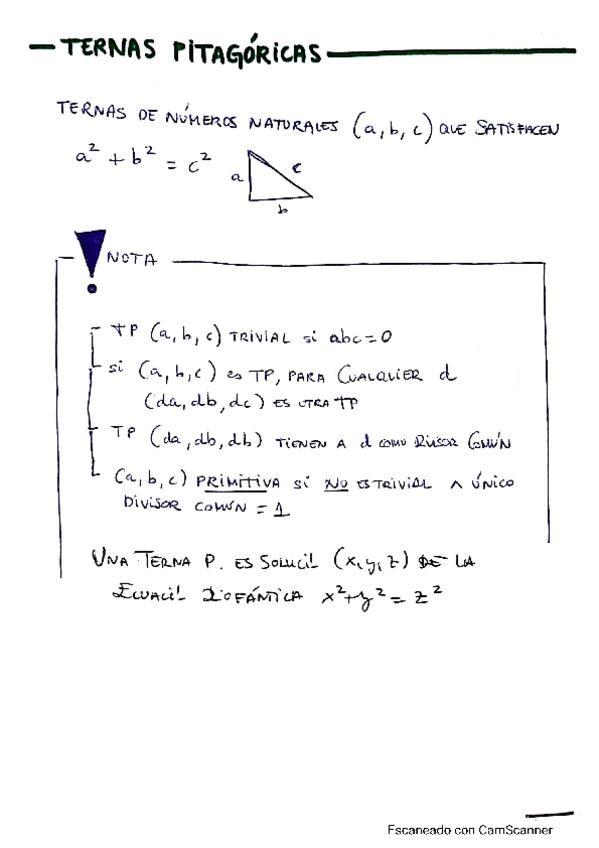 TERNAS PITAGÓRICAS
TERNAS DE NÚMEROS NATURALES (a, b, c) QUE SATISFACEN
a² + b² = c²
a
c
b
NOTA
TP (a, b, c) TRIVIAL si abc = 0
si (a, b, c) es TP, PARA CUALQUIER d
(da, db, dc) ES OTRA TP
TP (da, db, db) TIENEN A d COMO DIVISOR COMÚN
(a, b, c) PRIMITIVA si NO ES TRIVIAL ∧ ÚNICO
DIVISOR COMÚN = 1
UNA TERNA P. ES SOLUCI! (x, y, z) DE LA
ECUACI! DIOFÁNTICA x² + y² = z²
Escaneado con CamScanner